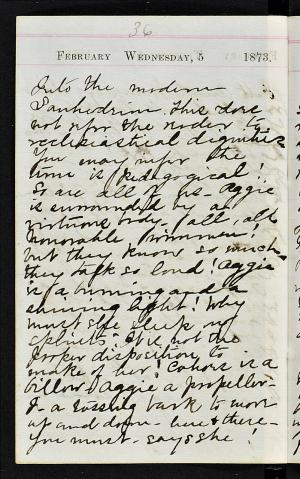 36
FEBRUARY WEDNESDAY, 5 1873.
Into the modern
Sanhedrim. This does
not refer the reader to
ecclesiastical dignities
You may infer the
tone is pedagogical!
So are all of us - Aggie
is surrounded by a
virtuous body - all, all
honorable women!
but they know so much
they talk so loud! Aggie
is a burning and a
shining light! Why
must she
It is not the
proper disposition to
make of her! Cohors is a
billow - Aggie a propeller -
I - a tossing bark to move
up and down - here & there -
you must - says she!